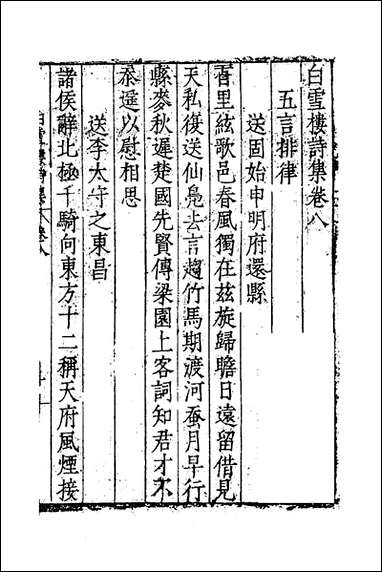 白雪樓詩集卷八
五言排律
送固始申明府還縣
百里絃歌邑春風獨在玆旋歸瞻日遠留借見
天私復送仙鳧去言趨竹馬期渡河蚕月早行
縣麥秋遲楚國先賢傳梁園上客詞知君才不
忝遥以慰相思
送李太守之東昌
諸侯辭北極千騎向東方十二稱天府風煙接